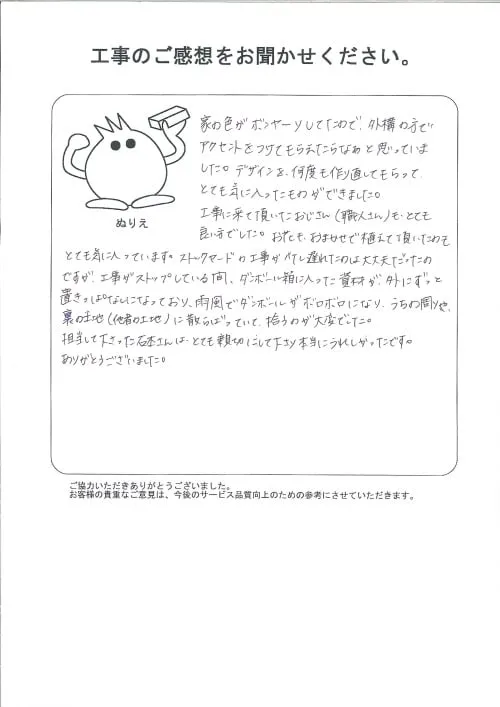 工事のご感想をお聞かせください。
家の色がボンヤーリしてたので、外構の方で
アクセントをつけてもらえたらなぁと思っていま
した。デザインを、何度も作り直してもらって、
とても気に入ったものができました。
工事に来て頂いたおじさん（職人さん）も、とても
良い方でした。お花も、おまかせで植えて頂いたのも
ぬりえ
とても気に入っています。ストックヤードの工事が少し遅れたのは大丈夫だったの
ですが、工事がストップしている間、ダンボール箱に入った資材が、外にずっと
置きっぱなしになっており、雨風でダンボールがボロボロになり、うちの周りや、
裏の土地（他者の土地）に散らばっていて、拾うのが大変でした。
担当して下さった石本さんは、とても親切にして下さり本当にうれしかったです。
ありがとうございました。
ご協力いただきありがとうございました。
お客様の貴重なご意見は、今後のサービス品質向上のための参考にさせていただきます。